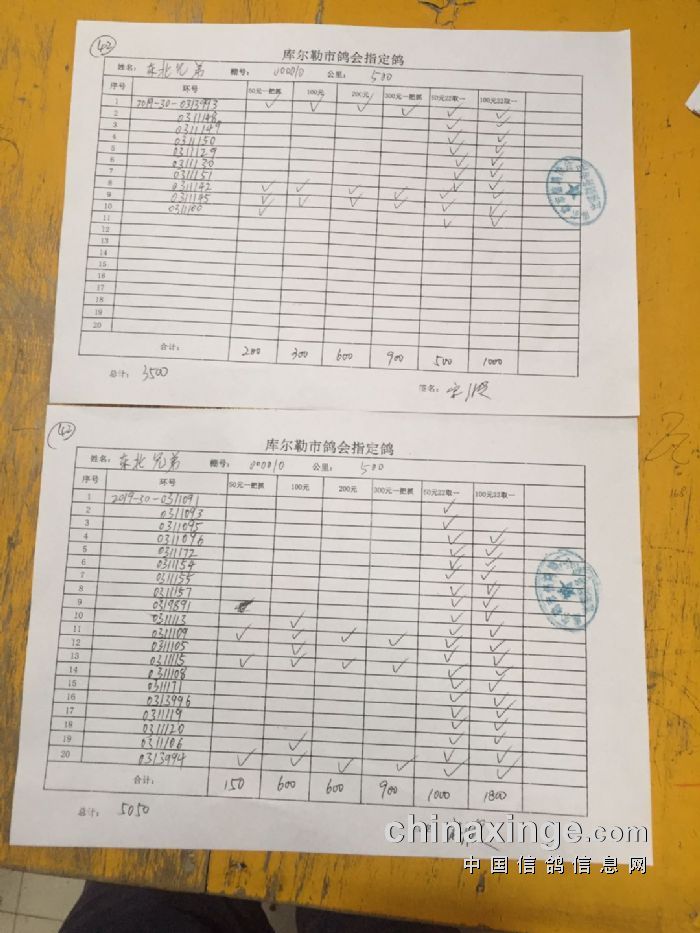 42
库尔勒市鸽会指定鸽
姓名: 东北兄弟 棚号: 000010 公里: 500
序号 环号 50元一把抓 100元 200元 300元一把抓 50元22取一 100元22取一
1 2019-30-0313993 ✓ ✓ ✓ ✓ ✓ ✓
2 0311148 ✓ ✓
3 0311149 ✓ ✓
4 0311150 ✓ ✓
5 0311129 ✓ ✓
6 0311130 ✓ ✓
7 0311151 ✓ ✓
8 0311142 ✓ ✓ ✓ ✓ ✓ ✓
9 0311145 ✓ ✓ ✓ ✓ ✓ ✓
10 0311100 ✓ ✓ ✓
11
12
13
14
15
16
17
18
19
20
合计: 200 300 600 900 500 1000
总计: 3500 签名:
42
库尔勒市鸽会指定鸽
姓名: 东北兄弟 棚号: 000010 公里: 500
序号 环号 50元一把抓 100元 200元 300元一把抓 50元22取一 100元22取一
1 2019-30-0311091 ✓
2 0311093 ✓
3 0311095 ✓ ✓
4 0311096 ✓ ✓
5 0311172 ✓ ✓
6 0311154 ✓ ✓
7 0311155 ✓ ✓
8 0311157 ✓ ✓
9 0319891 ✓ ✓
10 0311113 ✓ ✓ ✓
11 0311109 ✓ ✓ ✓ ✓ ✓ ✓
12 0311105 ✓ ✓ ✓
13 0311115 ✓ ✓ ✓ ✓ ✓ ✓
14 0311108 ✓ ✓
15 0311171 ✓ ✓
16 0313996 ✓ ✓
17 0311119 ✓ ✓
18 0311120 ✓ ✓
19 0311106 ✓ ✓ ✓
20 0313994 ✓ ✓ ✓ ✓ ✓ ✓
合计: 150 600 600 900 1000 1800
总计: 5050
chinaxinge.com
中国信鸽信息网